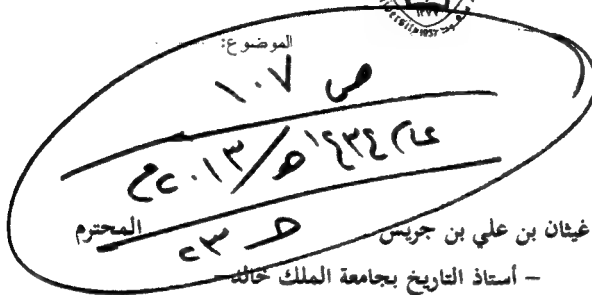 ١٣٧٧
1957
الموضوع:
ص ١٠٧
عام ١٤٣٤هـ/٢٠١٣م
حـ ٢٣
غيثان بن علي بن جريس المحترم
– أستاذ التاريخ بجامعة الملك خالد–